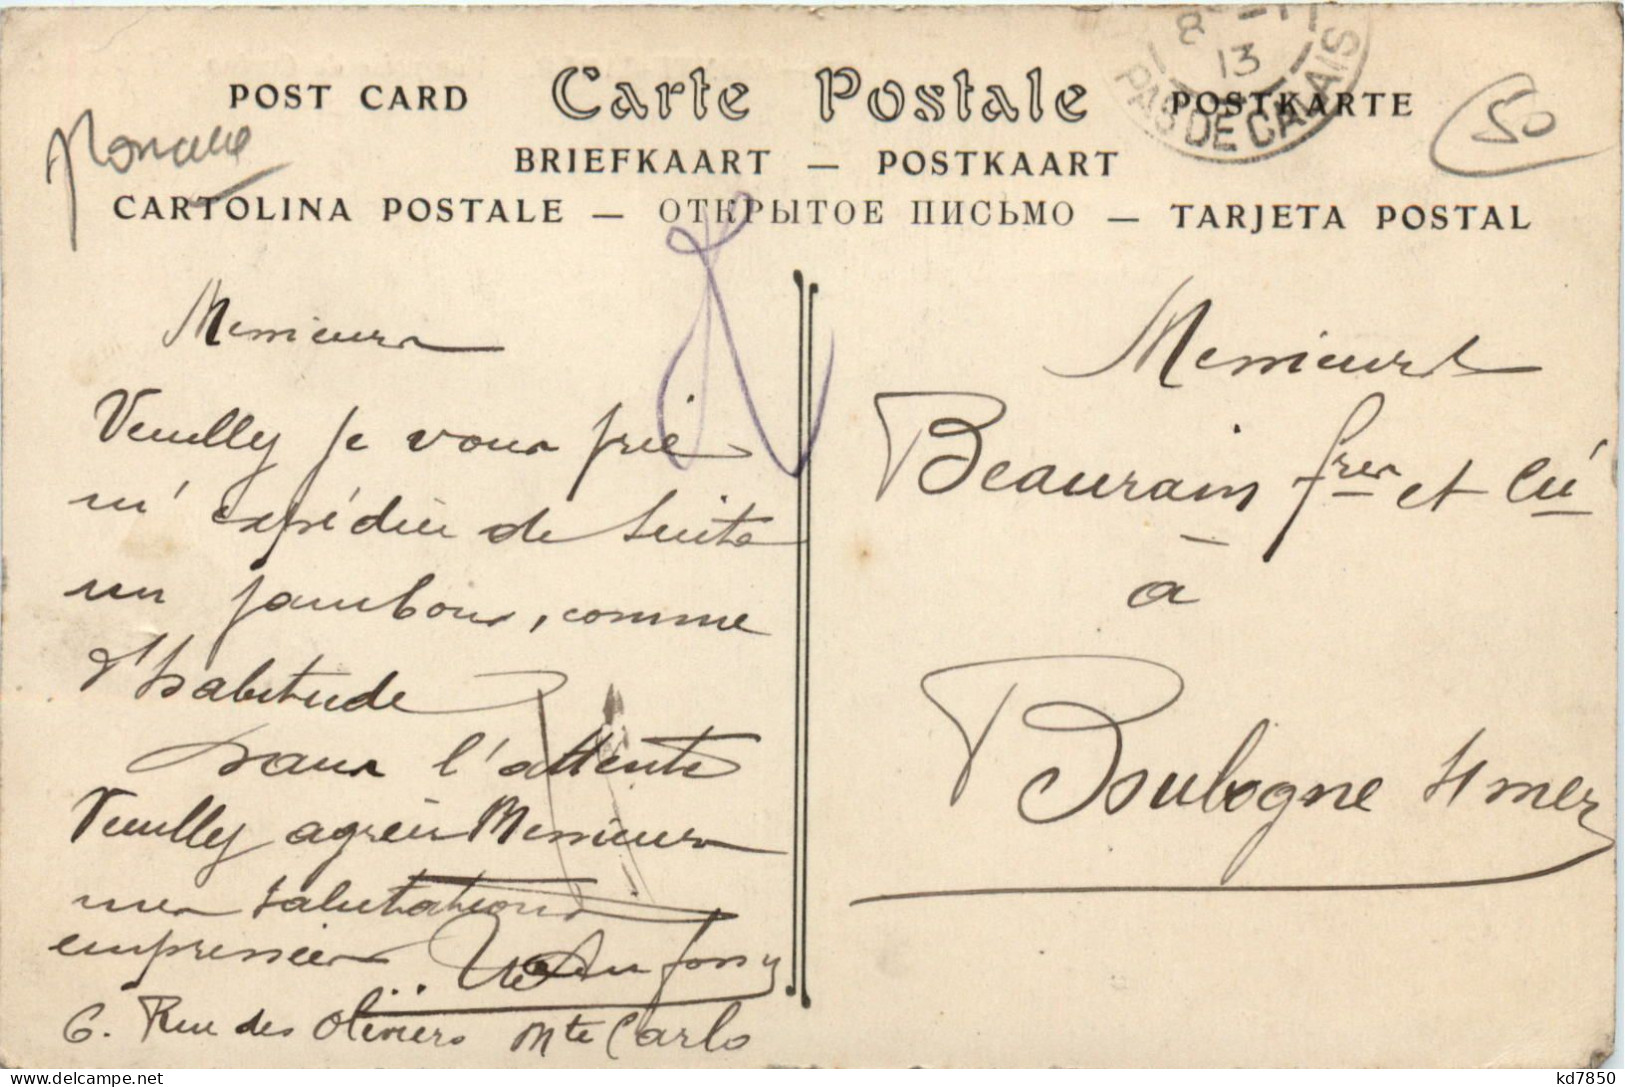 8
13
PAS DE CALAIS
POST CARD Carte Postale POSTKARTE
50
BRIEFKAART — POSTKAART
CARTOLINA POSTALE — ОТКРЫТОЕ ПИСЬМО — TARJETA POSTAL
Messieurs
Veuilly je vous prie
m'expédier de suite
un jambon, comme
d'habitude
dans l'attente
Veuilly agréer Messieurs
mes salutations
empressées
6. Rue des Oliviers Mte Carlo
Messieurs
Beaurain frers et Cie
à
Boulogne s/mer
kd7850